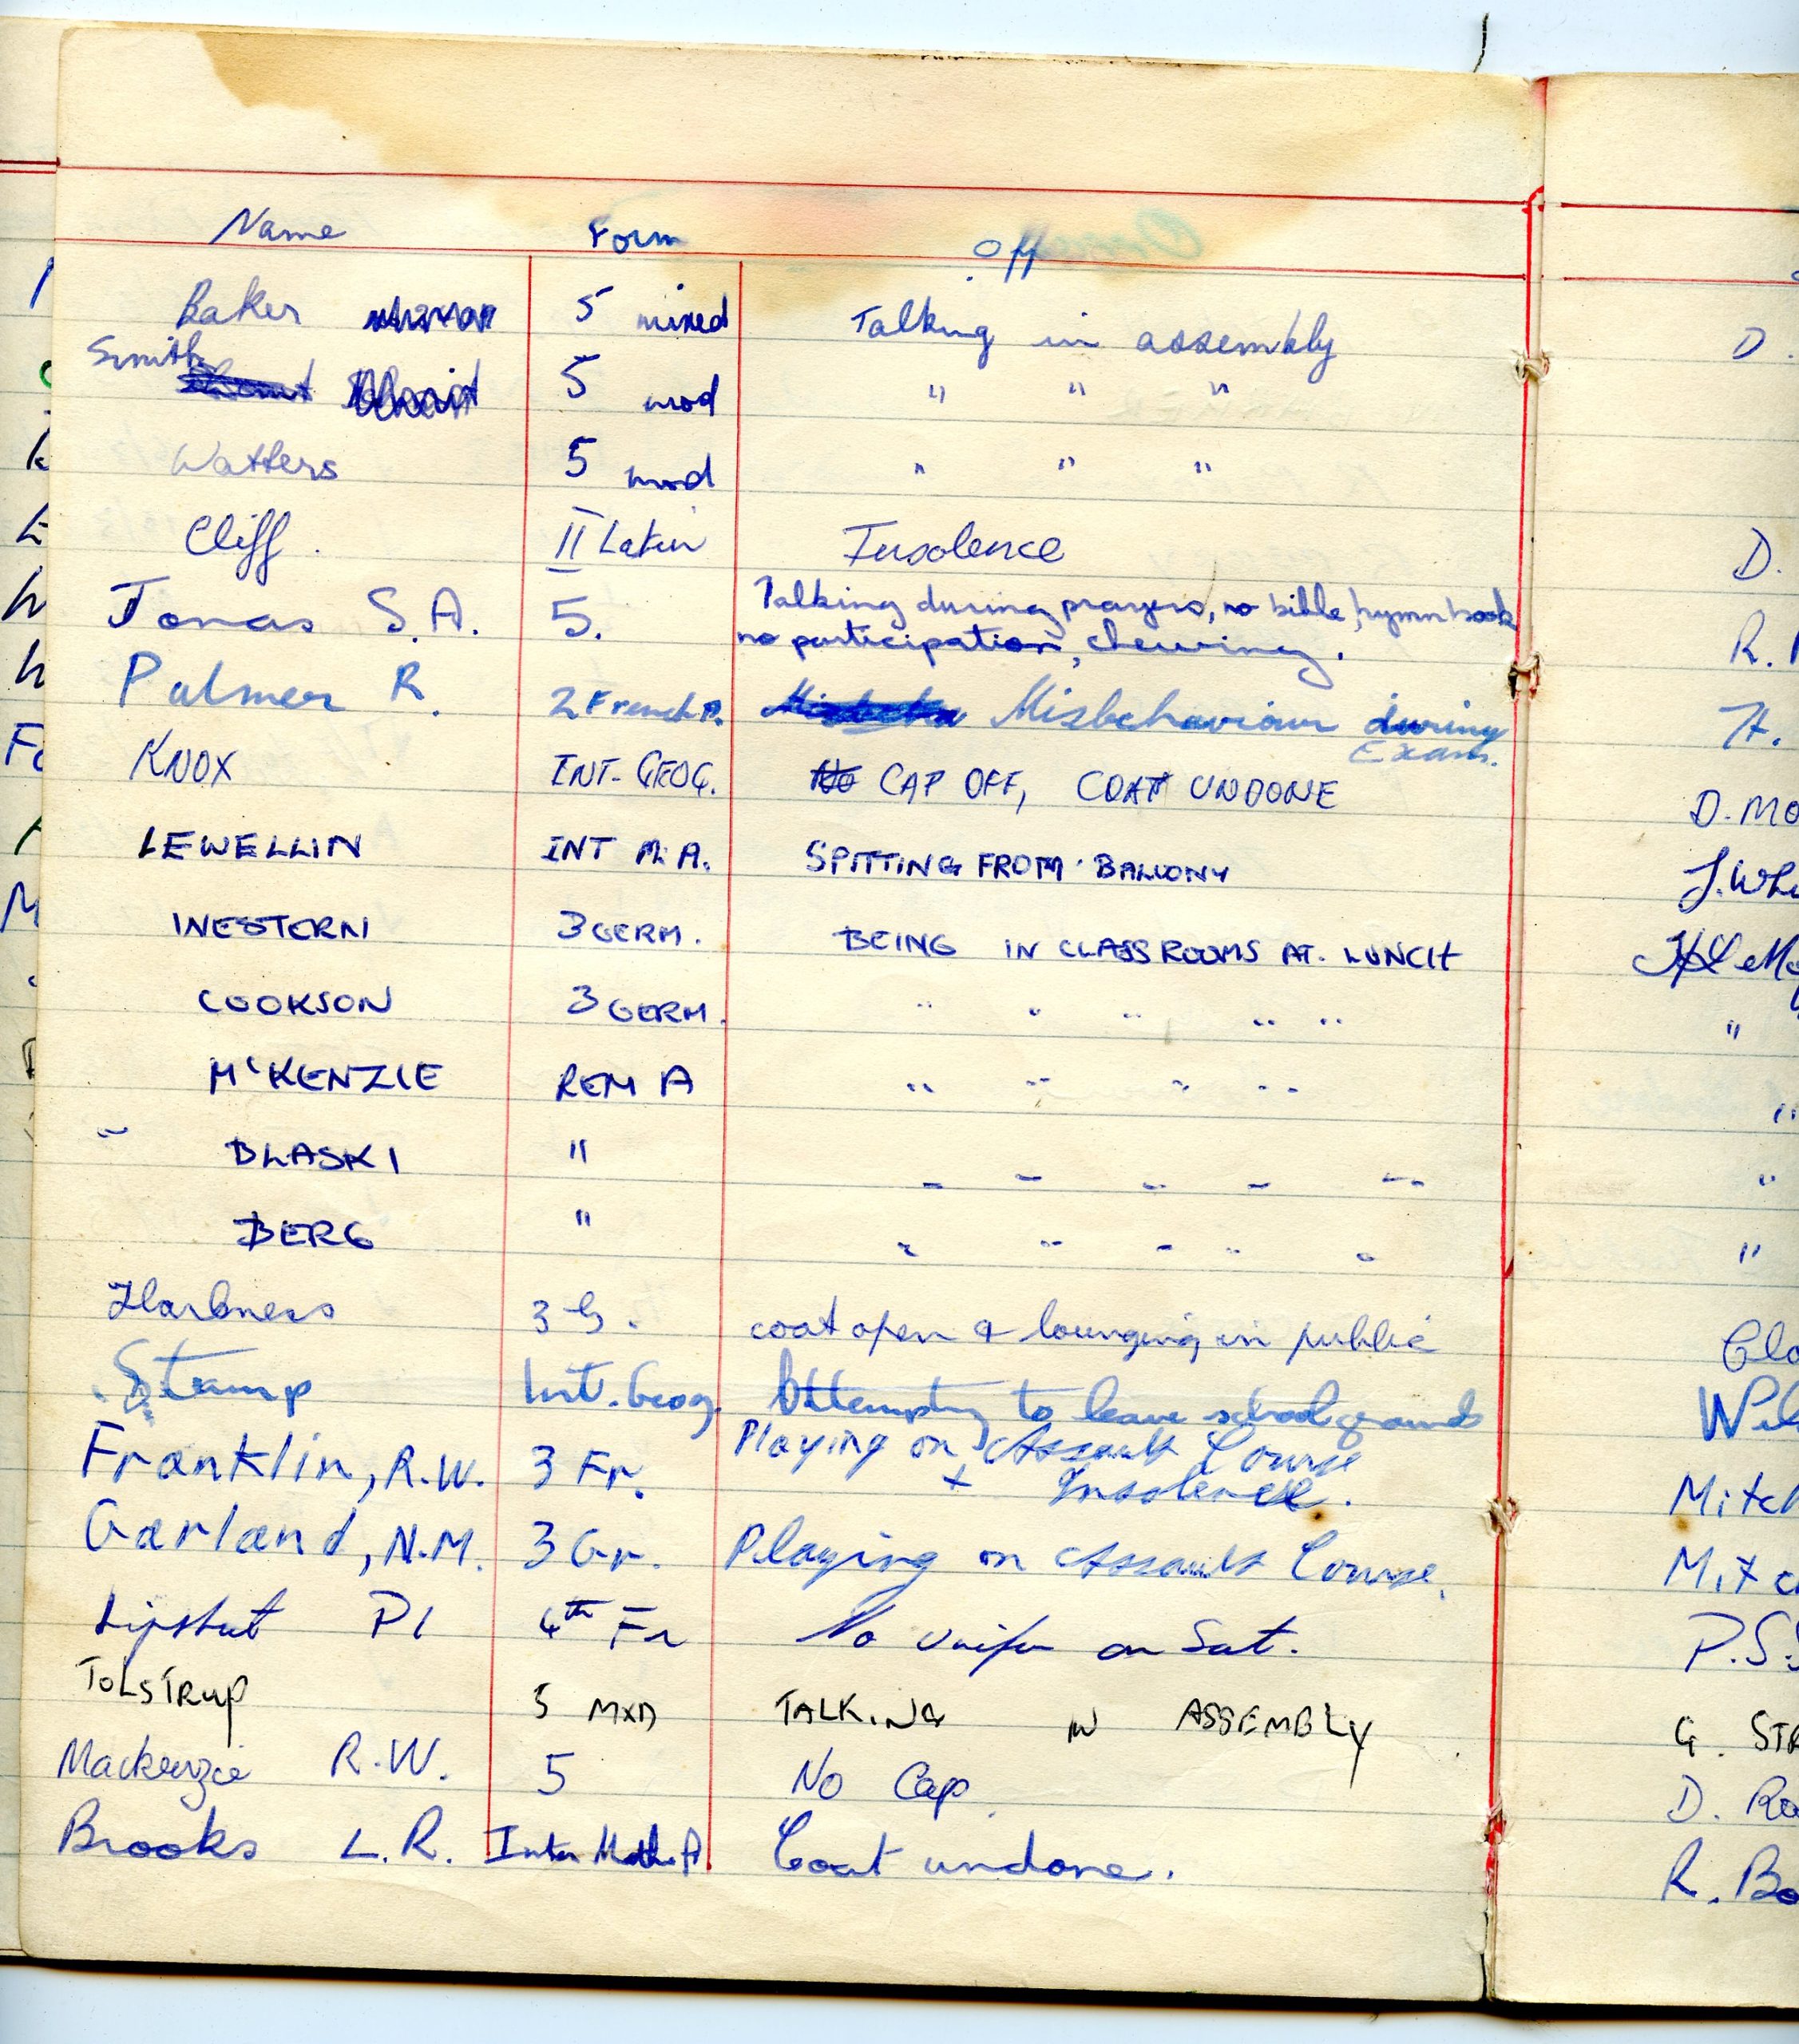 Name Form Off
Baker 5 mixed Talking in assembly D.
Smith 5 mod " " "
Watters 5 mod " " "
Cliff. II Latin Insolence D.
Jonas S.A. 5. Talking during prayers, no bible, hymn book R.
no participation, chewing.
Palmer R. 2 French P. Misbehaviour during H.
Exam.
KNOX INT-GEOG. CAP OFF, COAT UNDONE D. MO
LEWELLIN INT M.A. SPITTING FROM BALLONY J. Whi
WESTERN 3 GERM. BEING IN CLASSROOMS AT. LUNCH
COOKSON 3 GERM. " " " " " "
M'KENZIE REM A " " " " "
BLASKI " " " " " " "
BERG " " " " " " "
Harkness 3 G. coat open & lounging in public Clo
Stamp Int. Geog. Attempting to leave school grounds Wil
Franklin, R.W. 3 Fr. Playing on Assault Course Mitch
+ Insolence.
Garland, N.M. 3 Gr. Playing on Assault Course. Mitc
Lipshut P1 4th Fr No Unifm on Sat. P.S.S
TOLSTRUP 5 MXD TALKING IN ASSEMBLY G. STR
Mackenzie R.W. 5 No Cap D. Ro
Brooks L.R. Inter Math. A Coat undone. R. Bo